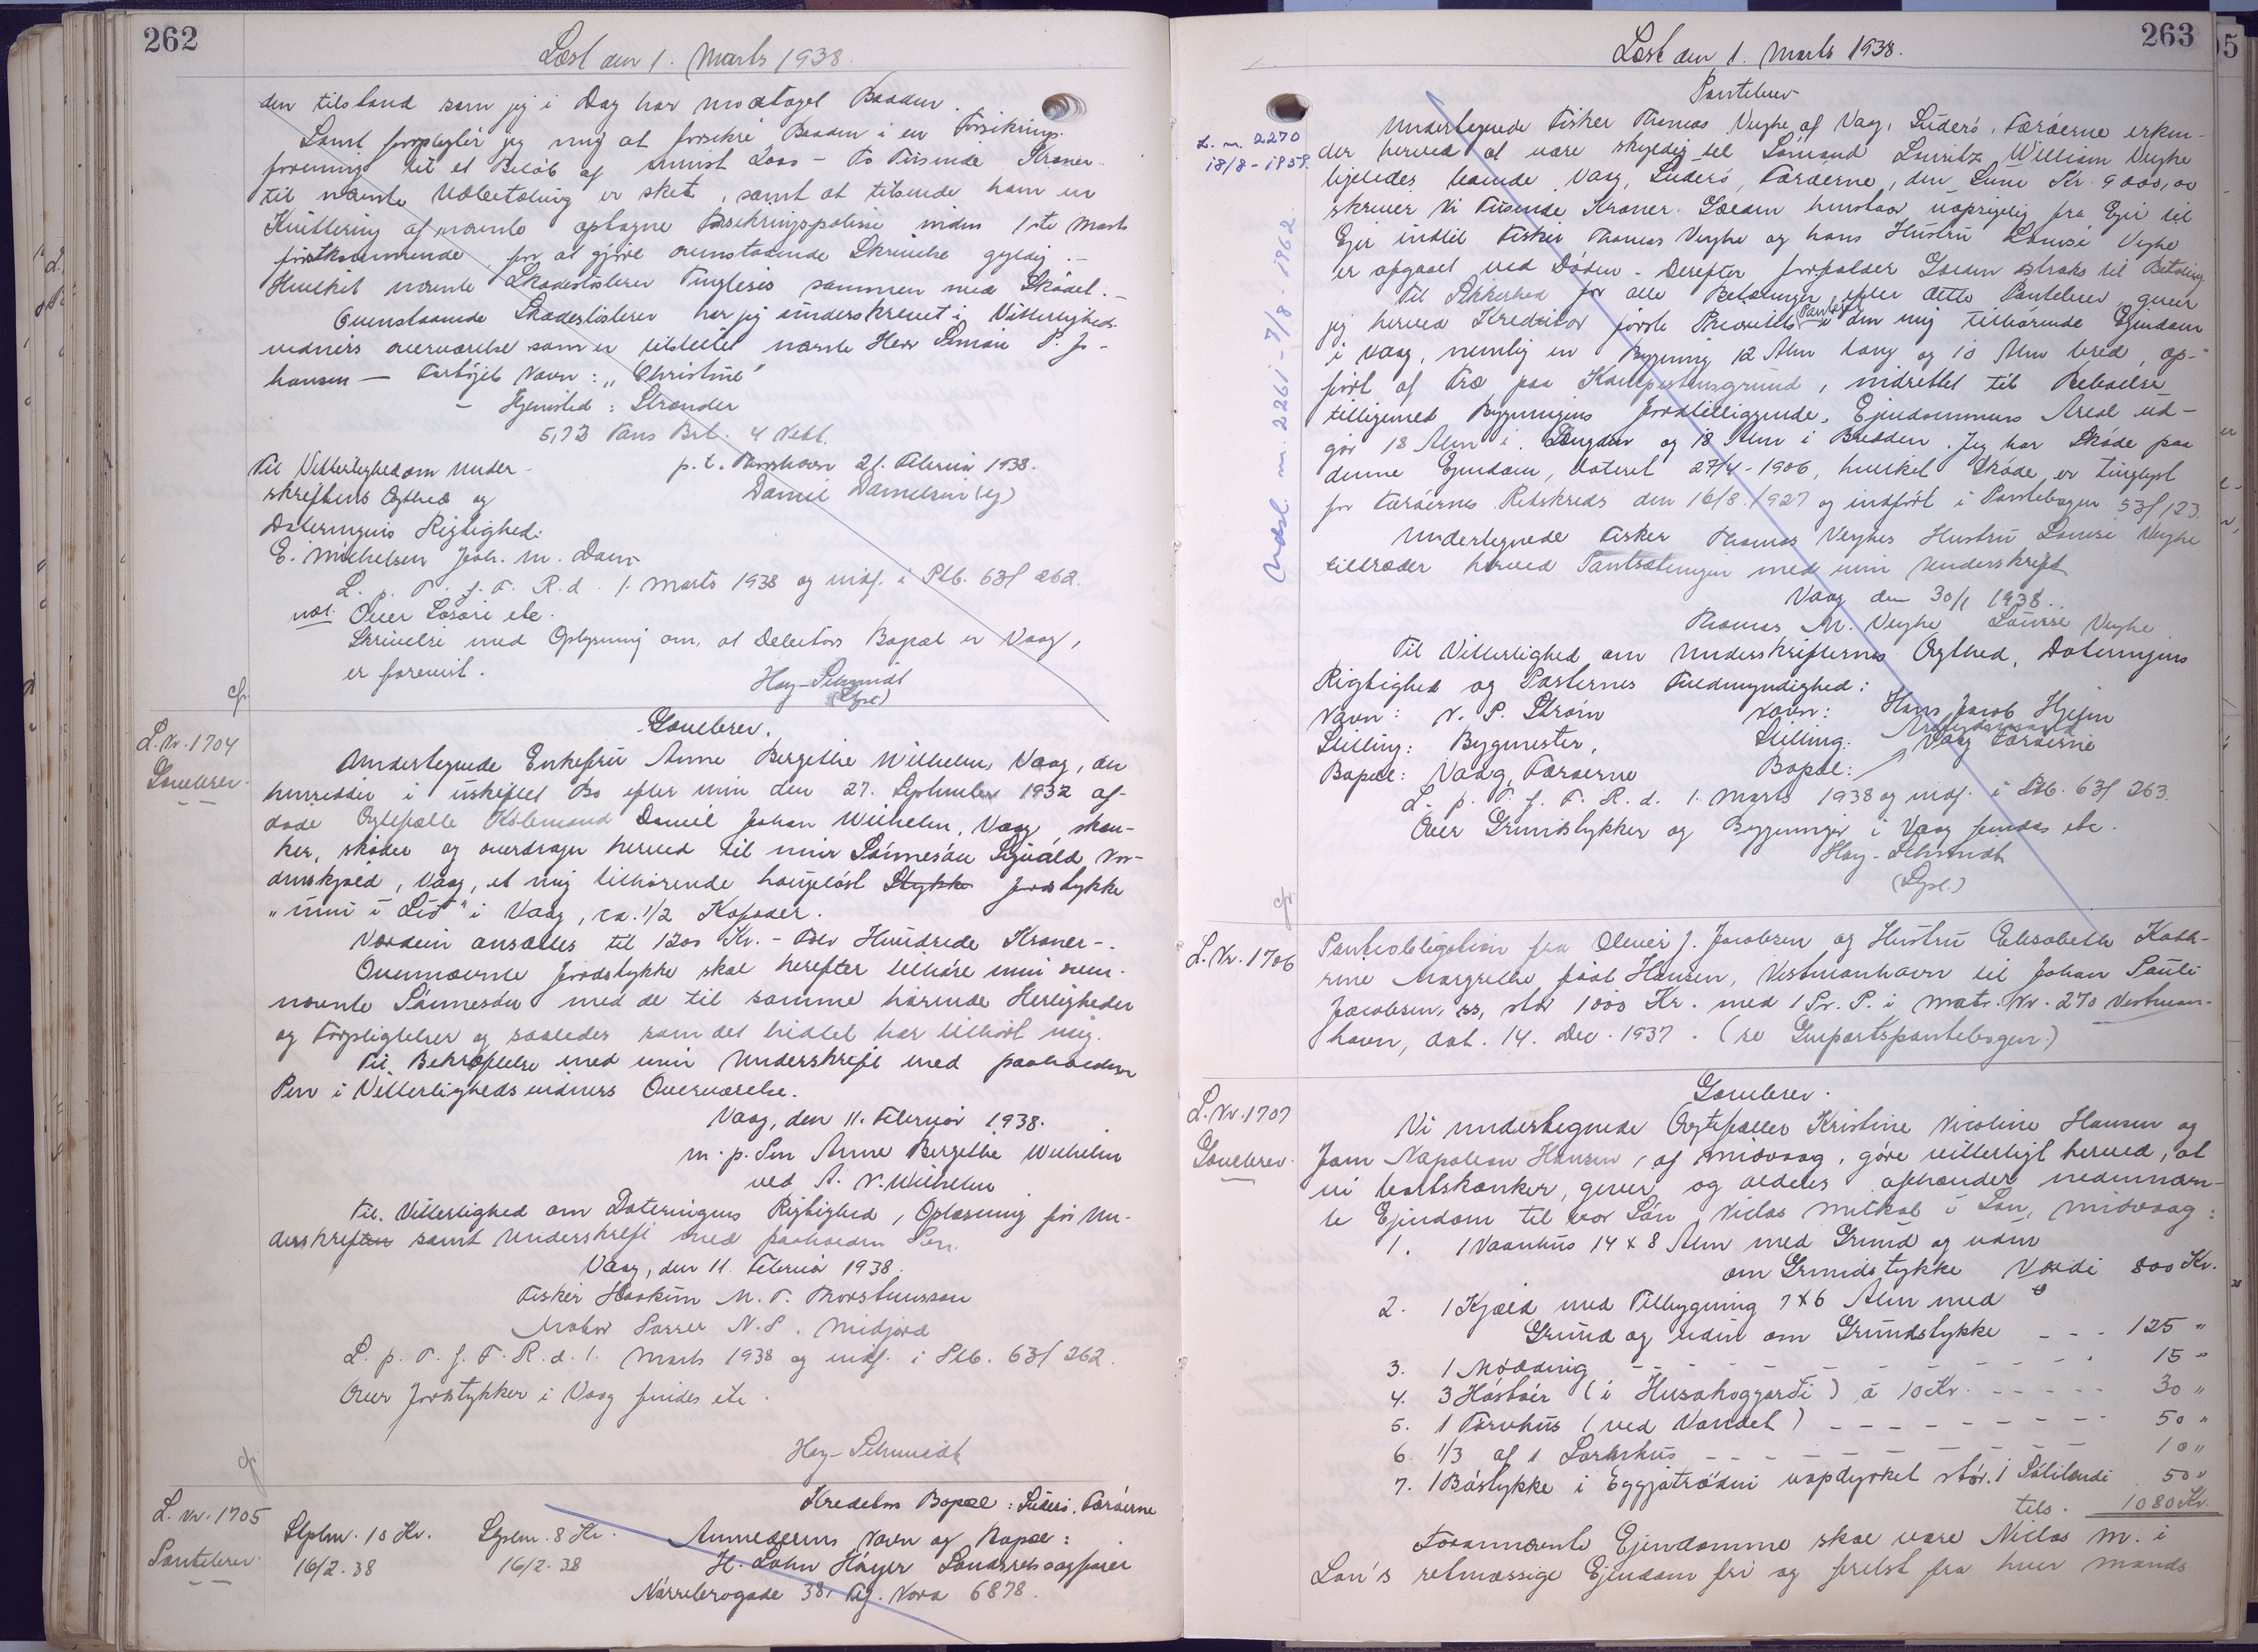 262
Læst den 1. Marts 1938.
den tilstand som jeg i Dag har modtaget Baaden.
Samt forpligter jeg mig at forsikre Baaden i en Forsikrings-
forening til et Beløb af mindst 2000 - To Tusinde Kroner
til nævnte Udbetaling er sket, samt at tilsende ham en
Kvittering af nævnte optagne Forsikringspolise inden 1ste Marts
førstkommende for at gjøre ovenstaaende Skrivelse gyldig.-
Hvilket nævnte Skadesløsbrev Tinglæses sammen med Skødet.-
Ovenstaaende Skadesløsbrev har jeg underskrevet i Vitterligheds-
vidners overværelse som er udstedet nævnte Herr Simon P. Jo-
hansen — Fartøjets Navn: "Christine"
- Hjemsted: Strender
5,73 Tons Brt. 4 Nett.
Til Vitterlighed om Under-
skriftens Ægthed og
Dateringens Rigtighed:
E. Michelsen Joh. M. Dam
p. t. Thorshavn 21. Februar 1938.
Daniel Danielsen (sg)
L. p. T. f. F. R. d. 1. Marts 1938 og indf. i Ptb. 63/ 262.
Over Løsøre etc.
Skrivelse med Oplysning om, at Debitors Bopæl er Vaag,
er forevist.
Hay-Schmidt
(Lysl.)
cfr.
L. Nr. 1704
Gavebrev.
Gavebrev.
Undertegnede Enkefru Anne Bergithe Wilhelm, Vaag, der
hensidder i uskiftet Bo efter min den 27. September 1932 af-
døde Ægtefælle Købmand Daniel Johan Wilhelm, Vaag, skæn-
ker, skøder og overdrager herved til min Sønnesøn Sigvald Nor-
denskjold, Vaag, et mig tilhørende haugeløst Stykke Jordstykke
"inni i Lid" i Vaag, ca. 1/2 Kopsæder.
Værdien ansættes til 1200 Kr. - Tolv Hundrede Kroner -.
Ovennævnte Jordstykke skal herefter tilhøre min oven-
nævnte Sønnesøn med de til samme hørende Herligheder
og Forpligtelser og saaledes som det hidtil har tilhørt mig.
Til Bekræftelse med min Underskrift med paaholden
Pen i Vitterlighedsvidners Overværelse.
Vaag, den 11. Februar 1938.
m. p. Pen Anne Bergithe Wilhelm
ved A. N. Wilhelm
Til Vitterlighed om Dateringens Rigtighed, Oplæsning før Un-
derskriften samt Underskrift med paaholden Pen.
Vaag, den 11. Februar 1938.
Fisker Haakun M. T. Thorsteinsson
N. S. Midjord
L. p. T. f. F. R. d. 1. Marts 1938 og indf. i Ptb. 63/ 262.
Over Jordstykker i Vaag findes etc.
Hay-Schmidt
cfr.
L. Nr. 1705
Pantebrev.
Stplm. 10 Kr.
16/2. 38
Stplm. 8 Kr.
16/2. 38
Kreditors Bopæl: Suderø, Færøerne
Anmelderens Navn og Bopæl:
H. Høyer Landsretssagfører
Nørrebrogade 38, Tlf. Nora 6878.
263
Læst den 1. Marts 1938.
Pantebrev
L. nr. 2270
18/8 - 1959.
Udsl. nr. 2261 - 7/8 - 1962.
Undertegnede Fisker Thomas Veyhe af Vaag, Suderø, Færøerne erken-
der herved at være skyldig til Sømand Lauritz William Veyhe
ligeledes boende Vaag, Suderø, Færøerne, den Sum Kr. 9000,00
skriver Ni Tusinde Kroner. Gælden henstaar uopsigelig fra Ejer til
Ejer indtil Fisker Thomas Veyhe og hans Hustru Louise Veyhe
er afgaaet ved Døden. Derefter forfalder Gælden straks til Betaling.
Til Sikkerhed for alle Betalinger efter dette Pantebrev giver
jeg herved Kreditor første Prioritets Panteret i den mig tilhørende Ejendom
i Vaag, nemlig en Bygning 12 Alen lang og 10 Alen bred, op-
ført af Træ paa Kampestensgrund, indrettet til Beboelse
tilligemed Bygningens Jordtilliggende, Ejendommens Areal ud-
gør 18 Alen i Længden og 18 Alen i Bredden. Jeg har Skøde paa
denne Ejendom, dateret 27/4 - 1906, hvilket Skøde er tinglyst
for Færøernes Retskreds den 16/8. 1927 og indført i Pantebogen 53/123.
Undertegnede Fisker Thomas Veyhes Hustru Louise Veyhe
tiltræder herved Pantsætningen med min Underskrift
Vaag den 30/1 1938..
Thomas M. Veyhe Louise Veyhe
Til Vitterlighed om Underskrifternes Ægthed, Dateringens
Rigtighed og Parternes Fuldmyndighed:
Navn: N. P. Strøm Navn: Hans Jacob Hjelm
Stilling: Bygmester, Stilling: Arbejdsmand
Bopæl: Vaag, Færøerne Bopæl: Vaag Færøerne
L. p. T. f. F. R. d. 1. Marts 1938 og indf. i Ptb. 63/ 263.
Over Grundstykker og Bygninger i Vaag findes etc.
Hay-Schmidt
(Lysl.)
cfr.
L. Nr. 1706
Panteobligation fra Oliver J. Jacobsen og Hustru Elisabeth Kath-
rine Margrethe født Hansen, Vestmanhavn til Johan Pauli
Jacobsen, ss, stor 1000 Kr. med 1 Pr. P. i matr. Nr. 270 Vestman-
havn, dat. 14. Dec. 1937. (se Genpartspantebogen.)
L. Nr. 1707
Gavebrev.
Gavebrev.
Vi undertegnede Ægtefæller Kristine Nicoline Hansen og
Joen Napoleon Hansen, af Midvaag, gøre vitterligt herved, at
vi bortskænker, giver og aldeles afhænder nedennævn-
te Ejendom til vor Søn Niclas Mikkal i Lon, Midvaag:
1. 1 Vaanhus 14 x 8 Alen med Grund og uden
om Grundstykke Værdi 800 Kr.
2. 1 Kjæld med Tilbygning 7 x 6 Alen med
Grund og uden om Grundstykke - - - 125 "
3. 1 Mødding - - - 15 "
4. 3 Høsbøir (i Husahoggjardi) á 10 Kr. - - - - - 30 "
5. 1 Tørvhus (ved Vandet) - - - - - 50 "
6. 1/3 af 1 Sørnhus - - - - - 10 "
7. 1 Bøstykke i Eggjatrødni uopdyrket stór. i Sátilendi 50 "
tils. 1080 Kr.
Forannævnte Ejendomme skal være Niclas M. i
Lon's retmæssige Ejendom fri og frelst fra hver Mands